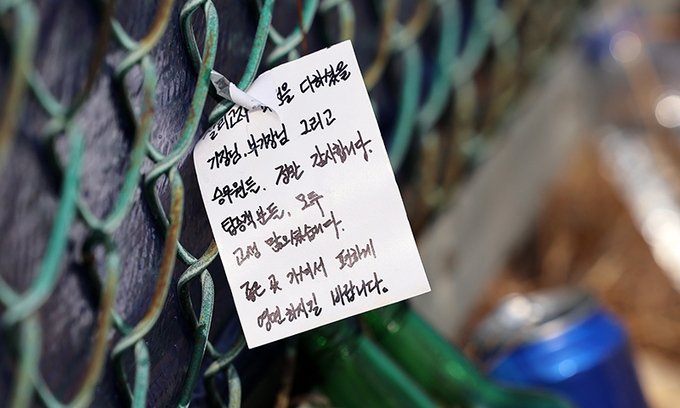 살리고자 최선을 다하셨을
기장님, 부기장님 그리고
승무원들, 정말 감사합니다.
탑승객 분들, 모두
고생 많으셨습니다.
좋은 곳 가셔서 편하게
영면하시길 바랍니다.